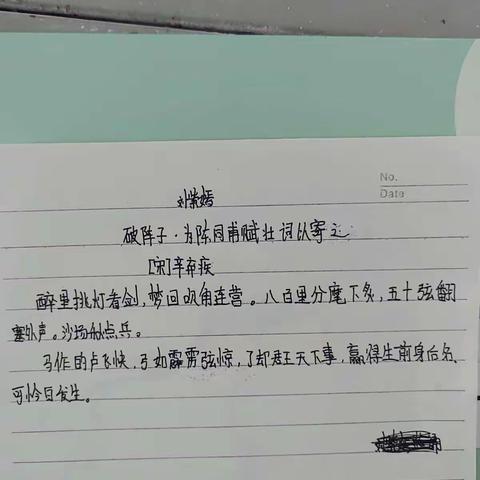 No.
Date
刘紫嫣
破阵子·为陈同甫赋壮词以寄之
[宋]辛弃疾
醉里挑灯看剑,梦回吹角连营。八百里分麾下炙,五十弦翻
塞外声。沙场秋点兵。
马作的卢飞快,弓如霹雳弦惊,了却君王天下事,赢得生前身后名,
可怜白发生。